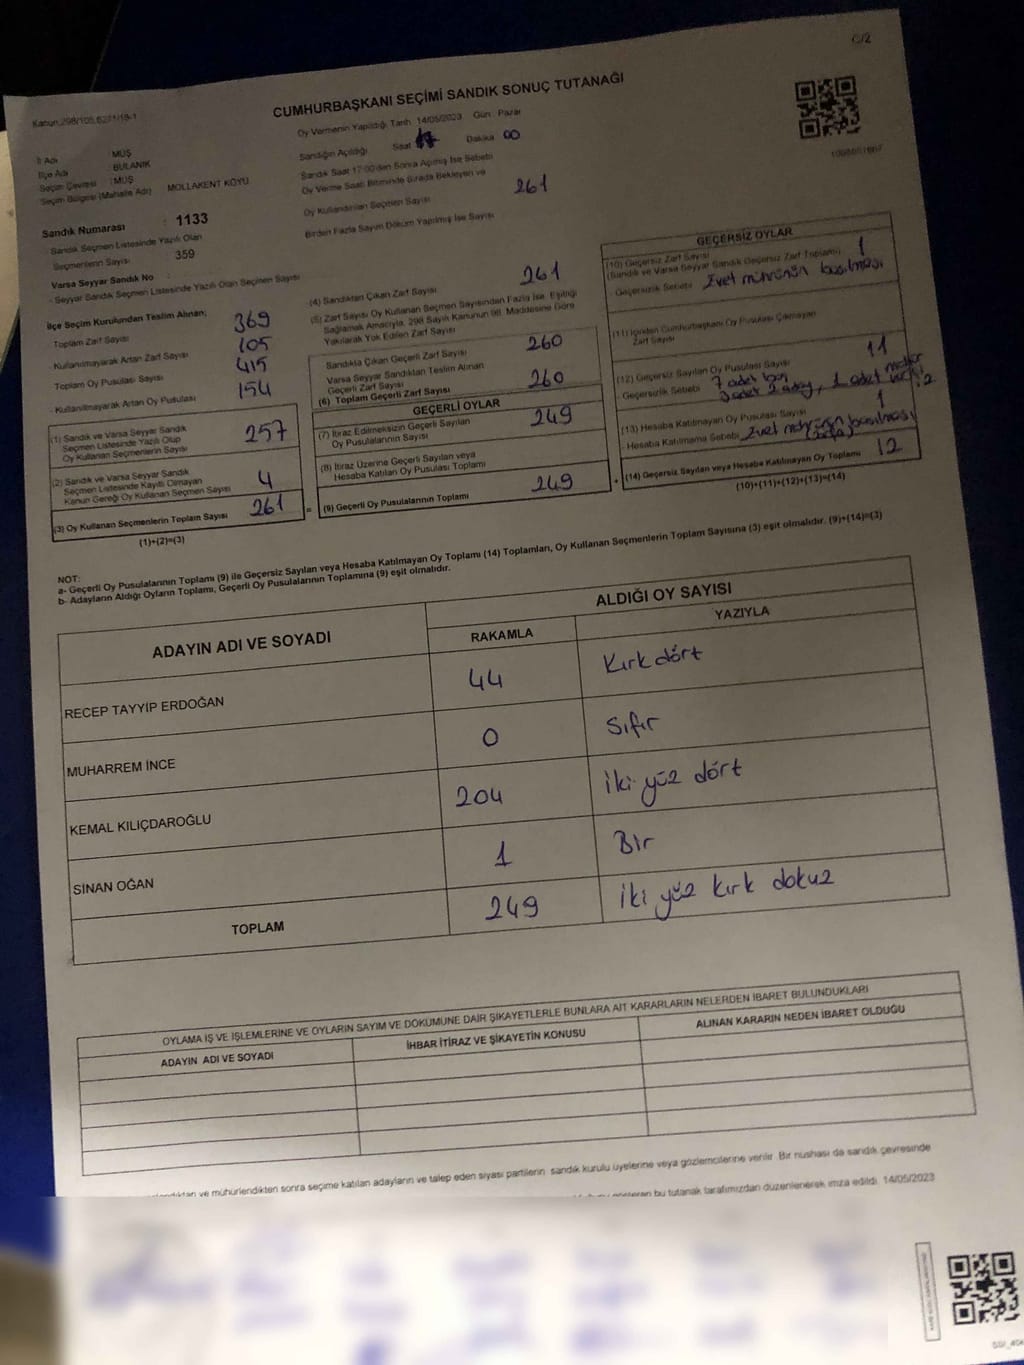 C/2
Kanun,298/105,6271/19-1
CUMHURBAŞKANI SEÇİMİ SANDIK SONUÇ TUTANAĞI
Oy Vermenin Yapıldığı Tarih 14/05/2023 Gün : Pazar
Sandığın Açıldığı Saat Dakika 00
Sandık Saat 17:00'den Sonra Açılmış İse Sebebi
Oy Verme Saati Bitiminde Sırada Bekleyen ve
Oy Kullandırılan Seçmen Sayısı 261
Birden Fazla Sayım Döküm Yapılmış İse Sayısı
İl Adı : MUŞ
İlçe Adı : BULANIK
Seçim Çevresi : MUŞ
Seçim Bölgesi (Mahalle Adı) MOLLAKENT KÖYÜ
Sandık Numarası : 1133
Sandık Seçmen Listesinde Yazılı Olan
Seçmenlerin Sayısı 359
Varsa Seyyar Sandık No :
- Seyyar Sandık Seçmen Listesinde Yazılı Olan Seçmen Sayısı
İlçe Seçim Kurulundan Teslim Alınan;
Toplam Zarf Sayısı 369
- Kullanılmayarak Artan Zarf Sayısı 105
Toplam Oy Pusulası Sayısı 415
- Kullanılmayarak Artan Oy Pusulası 154
(1) Sandık ve Varsa Seyyar Sandık
Seçmen Listesinde Yazılı Olup
Oy Kullanan Seçmenlerin Sayısı 257
(2) Sandık ve Varsa Seyyar Sandık
Seçmen Listesinde Kayıtlı Olmayan
Kanun Gereği Oy Kullanan Seçmen Sayısı 4
(3) Oy Kullanan Seçmenlerin Toplam Sayısı 261
(1)+(2)=(3)
(4) Sandıktan Çıkan Zarf Sayısı 261
(5) Zarf Sayısı Oy Kullanan Seçmen Sayısından Fazla İse, Eşitliği
Sağlamak Amacıyla, 298 Sayılı Kanunun 98. Maddesine Göre
Yakılarak Yok Edilen Zarf Sayısı
Sandıkta Çıkan Geçerli Zarf Sayısı 260
Varsa Seyyar Sandıktan Teslim Alınan
Geçerli Zarf Sayısı
(6) Toplam Geçerli Zarf Sayısı 260
GEÇERLİ OYLAR
(7) İtiraz Edilmeksizin Geçerli Sayılan
Oy Pusulalarının Sayısı 249
(8) İtiraz Üzerine Geçerli Sayılan veya
Hesaba Katılan Oy Pusulası Toplamı
(9) Geçerli Oy Pusulalarının Toplamı 249
GEÇERSİZ OYLAR
(10) Geçersiz Zarf Sayısı
(Sandık ve Varsa Seyyar Sandık Geçersiz Zarf Toplamı) 1
- Geçersizlik Sebebi : Evet mührünün basılması
(11) İçinden Cumhurbaşkanı Oy Pusulası Çıkmayan
Zarf Sayısı
(12) Geçersiz Sayılan Oy Pusulası Sayısı 11
Geçersizlik Sebebi : 7 adet boş
3 adet 2 aday, 1 adet
(13) Hesaba Katılmayan Oy Pusulası Sayısı 1
- Hesaba Katılmama Sebebi : Evet mührünün basılması
(14) Geçersiz Sayılan veya Hesaba Katılmayan Oy Toplamı 12
(10)+(11)+(12)+(13)=(14)
NOT:
a- Geçerli Oy Pusulalarının Toplamı (9) ile Geçersiz Sayılan veya Hesaba Katılmayan Oy Toplamı (14) Toplamları, Oy Kullanan Seçmenlerin Toplam Sayısına (3) eşit olmalıdır. (9)+(14)=(3)
b- Adayların Aldığı Oyların Toplamı, Geçerli Oy Pusulalarının Toplamına (9) eşit olmalıdır.
ADAYIN ADI VE SOYADI
ALDIĞI OY SAYISI
RAKAMLA YAZIYLA
RECEP TAYYİP ERDOĞAN 44 Kırk dört
MUHARREM İNCE 0 Sıfır
KEMAL KILIÇDAROĞLU 204 İki yüz dört
SİNAN OĞAN 1 Bir
TOPLAM 249 İki yüz kırk dokuz
OYLAMA İŞ VE İŞLEMLERİNE VE OYLARIN SAYIM VE DÖKÜMÜNE DAİR ŞİKAYETLERLE BUNLARA AİT KARARLARIN NELERDEN İBARET BULUNDUKLARI
ADAYIN ADI VE SOYADI İHBAR İTİRAZ VE ŞİKAYETİN KONUSU ALINAN KARARIN NEDEN İBARET OLDUĞU
ve mühürlendikten sonra seçime katılan adayların ve talep eden siyasi partilerin sandık kurulu üyelerine veya gözlemcilerine verilir. Bir nüshası da sandık çevresinde
gösteren bu tutanak tarafımızdan düzenlenerek imza edildi. 14/05/2023